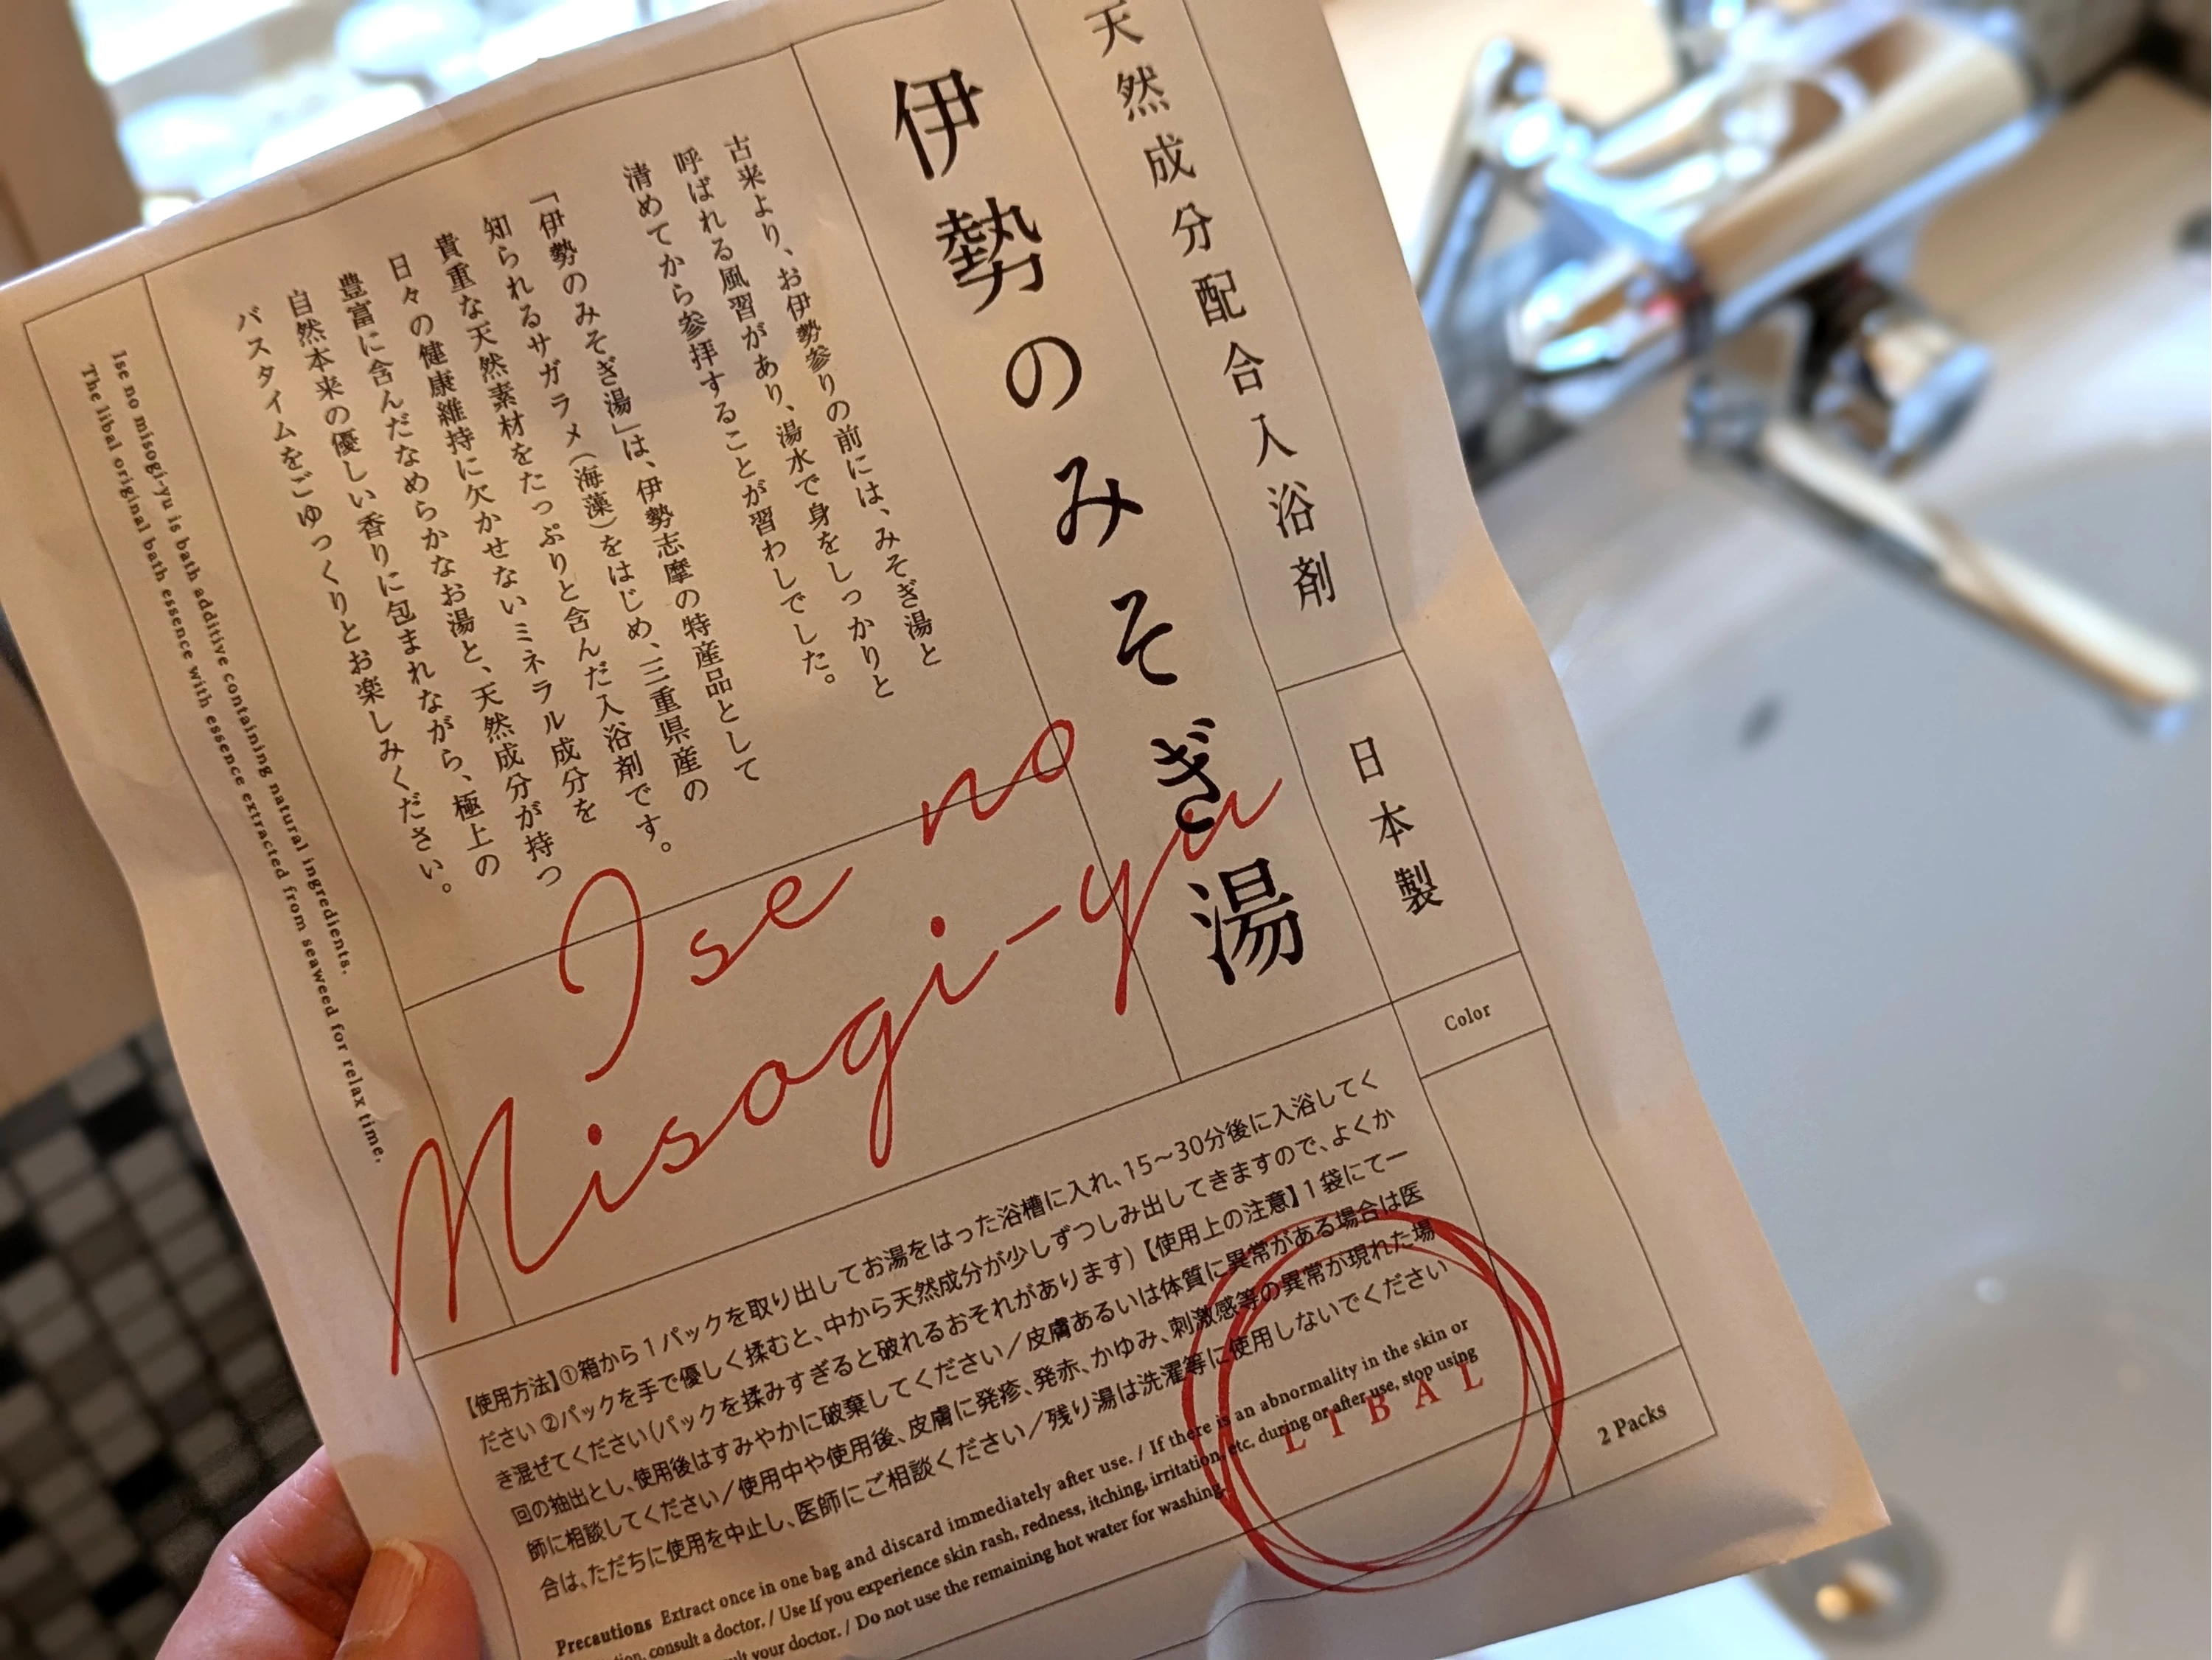 天然成分配合入浴剤
日本製
伊勢のみそぎ湯
古来より、お伊勢参りの前には、みそぎ湯と
呼ばれる風習があり、湯水で身をしっかりと
清めてから参拝することが習わしでした。
「伊勢のみそぎ湯」は、伊勢志摩の特産品として
知られるサガラメ（海藻）をはじめ、三重県産の
貴重な天然素材をたっぷりと含んだ入浴剤です。
日々の健康維持に欠かせないミネラル成分を
豊富に含んだなめらかなお湯と、天然成分が持つ
自然本来の優しい香りに包まれながら、極上の
バスタイムをごゆっくりとお楽しみください。
Ise no misogi-yu is bath additive containing natural ingredients.
The libal original bath essence with essence extracted from seaweed for relax time.
Ise no
Misogi-yu
Color
【使用方法】①箱から1パックを取り出してお湯をはった浴槽に入れ、15〜30分後に入浴してく
ださい ②パックを手で優しく揉むと、中から天然成分が少しずつしみ出してきますので、よくか
き混ぜてください（パックを揉みすぎると破れるおそれがあります）【使用上の注意】1袋にて一
回の抽出とし、使用後はすみやかに破棄してください／皮膚あるいは体質に異常がある場合は医
師に相談してください／使用中や使用後、皮膚に発疹、発赤、かゆみ、刺激感等の異常が現れた場
合は、ただちに使用を中止し、医師にご相談ください／残り湯は洗濯等に使用しないでください
Precautions Extract once in one bag and discard immediately after use. / If there is an abnormality in the skin or
consult a doctor. / Use If you experience skin rash, redness, itching, irritation, etc. during or after use, stop using
your doctor. / Do not use the remaining hot water for washing.
LIBAL
2 Packs